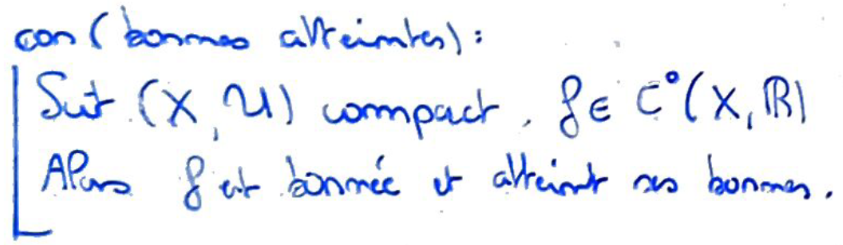 cor (bornes atteintes) :
Soit (X, U) compact, f ∈ C°(X, ℝ)
Alors f est bornée et atteint ses bornes.